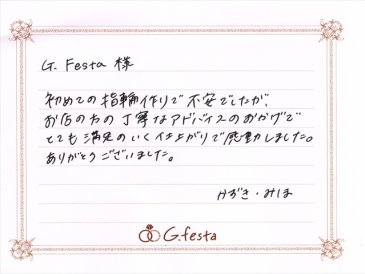 G. Festa 様
初めての指輪作りで不安でしたが、
お店の方の丁寧なアドバイスのおかげで
とても満足のいく仕上がりで感動しました。
ありがとうございました。
かずき・みほ
G.festa